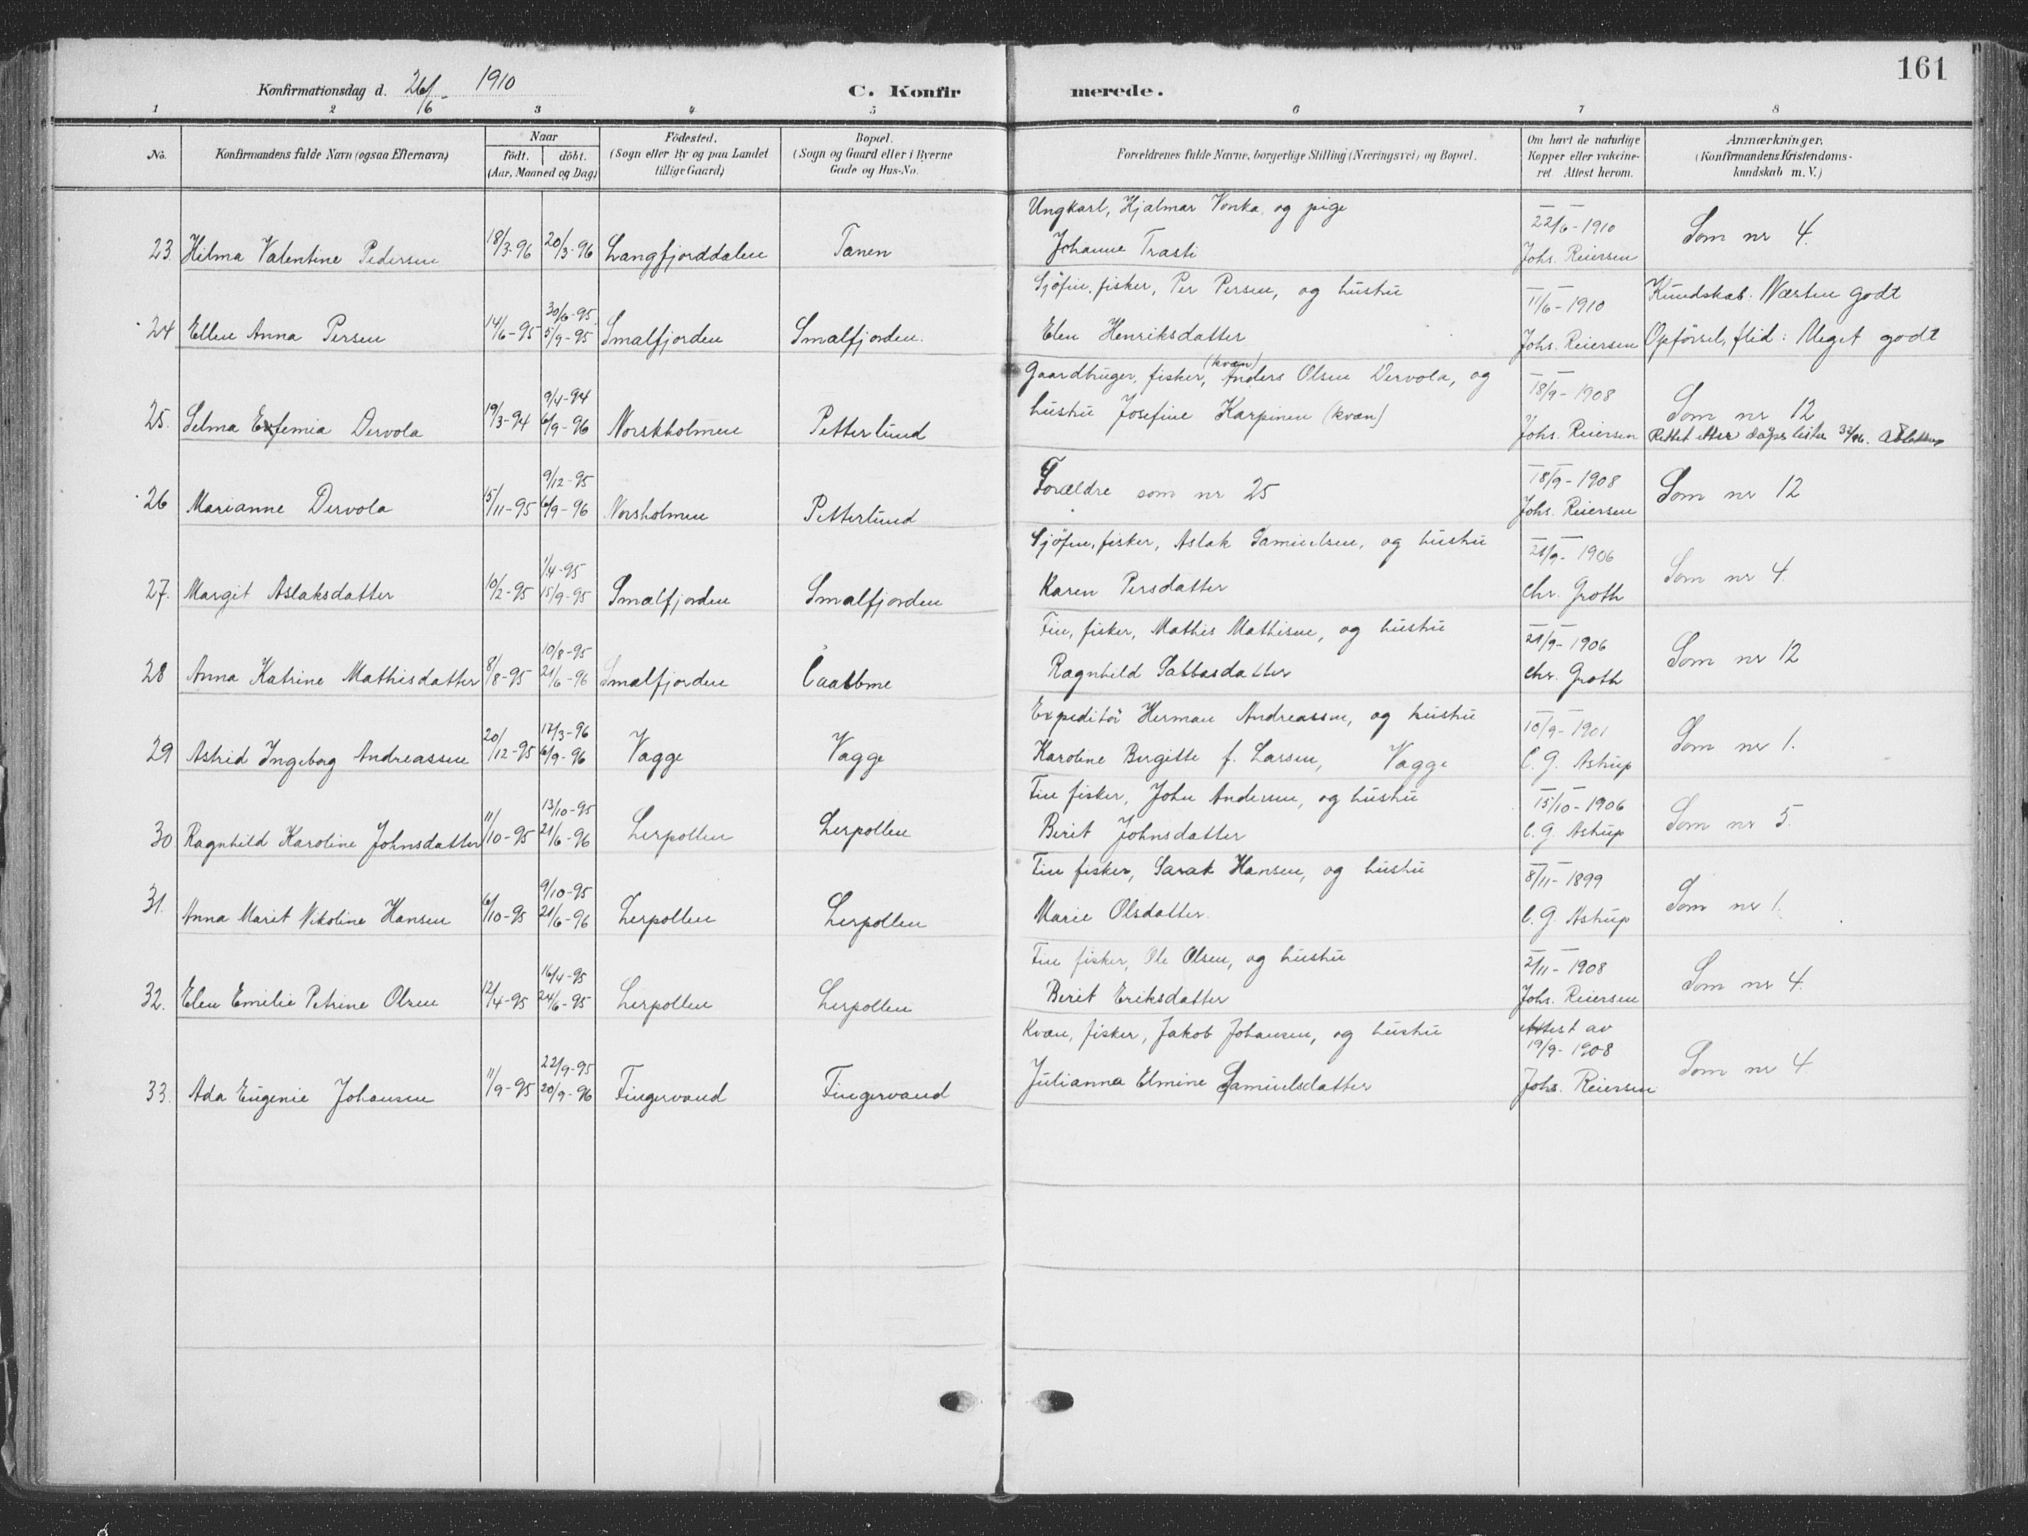 161
Konfirmationsdag d. 26/6 - 1910 C. Konfirmerede.
1 2 3 4 5 6 7 8
No. Konfirmandens fulde Navn (ogsaa Efternavn) Naar födt. döbt. (Aar, Maaned og Dag) Födested. (Sogn eller By og paa Landet tillige Gaard) Bopæl. (Sogn og Gaard eller i Byerne Gade og Hus-No. Forældrenes fulde Navne, borgerlige Stilling (Næringsvei) og Bopæl. Om havt de naturlige Kopper eller vakcineret. Attest herom. Anmærkninger. (Konfirmandens Kristendomskundskab m. V.)
23. Hilma Valentine Pedersen 18/3-96 20/3-96 Langfjorddalen Tanen Ungkarl, Hjalmar Vonka og pige 22/6-1910 Som nr 4.
Johanne Trasti Johs. Reiersen
24 Ellen Anna Persen 14/6-95 30/6-95 5/9-95 Smalfjorden Smalfjorden. Sjöfin, fisker, Per Persen, og hustru 11/6-1910 Kundskab. Næsten godt
Elen Henriksdatter Johs. Reiersen Opförsel, flid: Meget godt
25. Selma Exfemia Dervola 19/3-94 9/4-94 6/9-96 Norskholmen Petterlund Gaardbruger, fisker, (kvæn) Anders Olsen Dervola, og 18/9-1908 Som nr 12
hustru Josefine Karpinen (kvæn) Johs. Reiersen Rettet etter daaps lister
26 Marianne Dervola 15/11-95 9/12-95 6/9-96 Norsholmen Petterlund Forældre som nr 25 18/9-1908 Som nr 12
Johs. Reiersen
27. Margit Aslaksdatter 10/2-95 1/4-95 15/9-95 Smalfjorden Smalfjorden Sjöfin, fisker, Aslak Samuelsen, og hustru 21/9-1906 Som nr 4.
Karen Persdatter Chr. Groth
28 Anna Katrine Mathisdatter 8/8-95 10/8-95 21/6-96 Smalfjorden Fin, fisker, Mathis Mathisen, og hustru 21/9-1906 Som nr 12
Ragnhild Sabbasdatter Chr. Groth
29 Astrid Ingeborg Andreassen 20/12-95 17/3-96 6/9-96 Vagge Vagge Expeditör Herman Andreassen, og hustru 10/9-1901 Som nr 1.
Karoline Bergitte f. Larsen, Vagge C. G. Astrup
30 Ragnhild Karoline Johnsdatter 11/10-95 13/10-95 21/6-96 Lerpollen Lerpollen Fin fisker, John Andersen, og hustru 15/10-1906 Som nr 5.
Berit Johnsdatter C. G. Astrup
31. Anna Marit Nikoline Hansen 6/10-95 9/10-95 21/6-96 Lerpollen Lerpollen Fin fisker, Sarak Hansen, og hustru 8/11-1899 Som nr 1.
Marie Olsdatter. C. G. Astrup
32. Elen Emilie Petrine Olsen 12/4-95 16/4-95 24/6-95 Lerpollen Lerpollen Fin fisker, Ole Olsen, og hustru 2/11-1908 Som nr 4.
Berit Eriksdatter Johs. Reiersen
33. Ada Eugenie Johansen 11/9-95 22/9-95 20/9-96 Fingervand Fingervand Kvæn, fisker, Jakob Johansen, og hustru Attest av 19/9-1908 Som nr 4
Julianna Elmine Samuelsdatter Johs. Reiersen